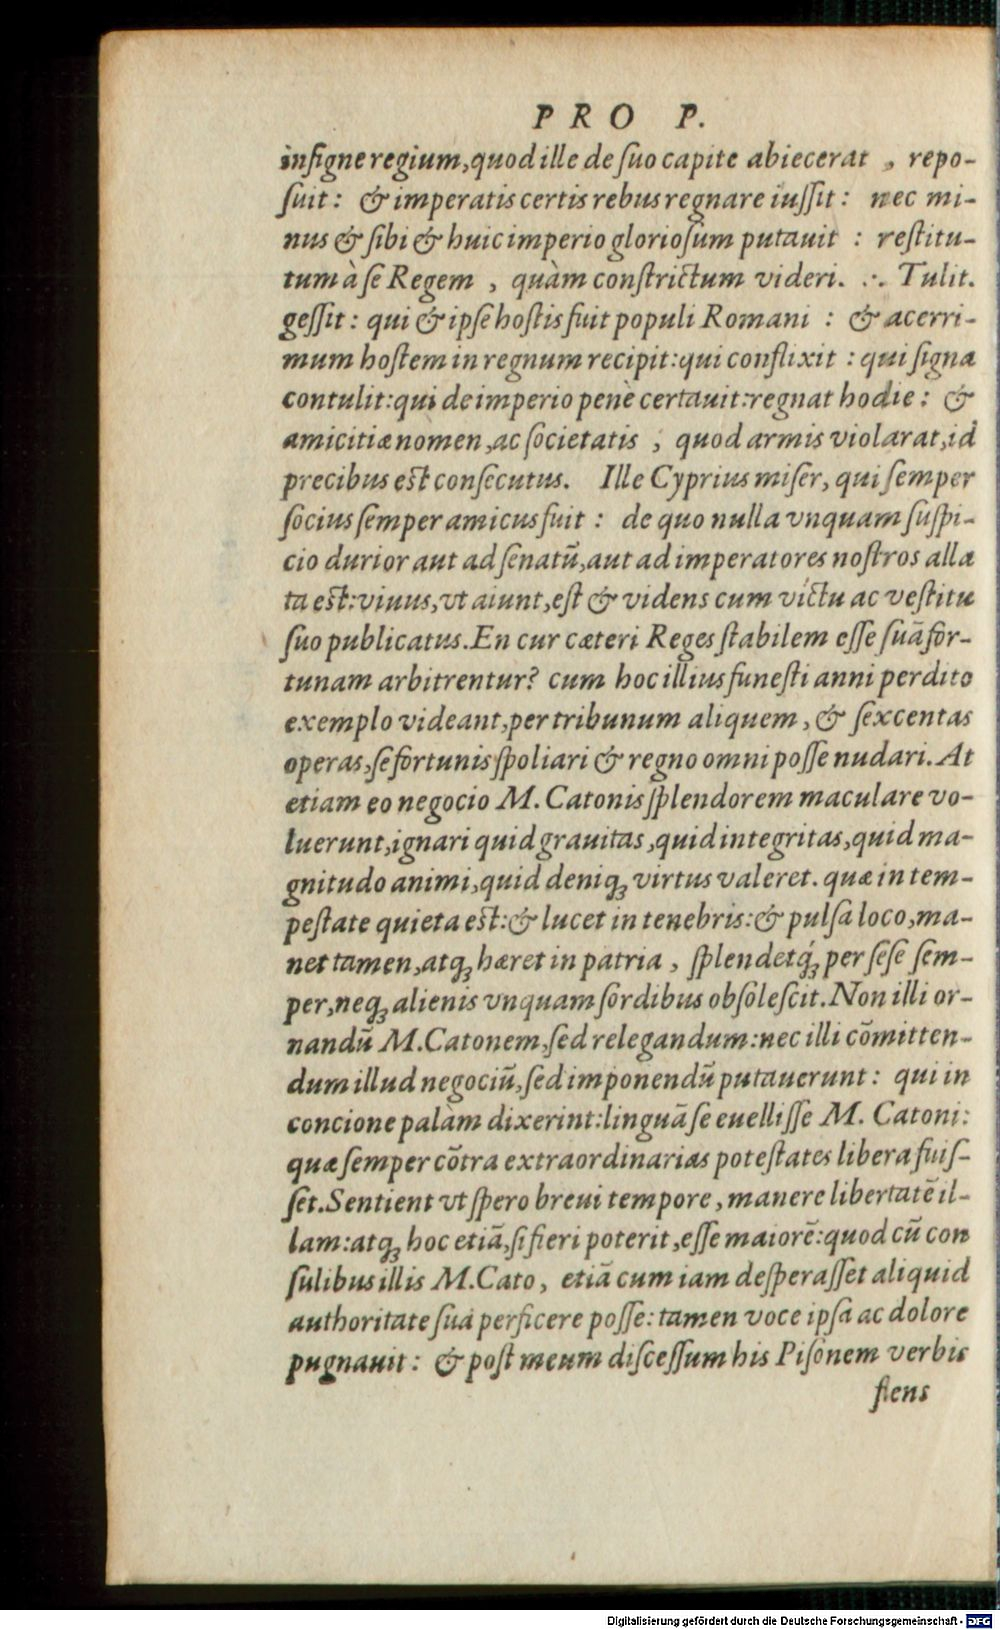 PRO P.
inſigne regium, quod ille de ſuo capite abiecerat , repo-
ſuit: & imperatis certis rebus regnare iuſſit: nec mi-
nus & ſibi & huic imperio glorioſum putauit : reſtitu-
tum à ſe Regem , quàm conſtrictum videri. ∴ Tulit.
geſſit: qui & ipſe hoſtis fuit populi Romani : & acerri-
mum hoſtem in regnum recipit: qui conflixit : qui ſigna
contulit: qui de imperio penè certauit: regnat hodie: &
amicitiæ nomen, ac ſocietatis , quod armis violarat, id
precibus eſt conſecutus. Ille Cyprius miſer, qui ſemper
ſocius ſemper amicus fuit : de quo nulla vnquam ſuſpi-
cio durior aut ad ſenatū, aut ad imperatores noſtros alla
ta eſt: viuus, vt aiunt, eſt & videns cum victu ac veſtitu
ſuo publicatus. En cur cæteri Reges ſtabilem eſſe ſuā for-
tunam arbitrentur? cum hoc illius funeſti anni perdito
exemplo videant, per tribunum aliquem, & ſexcentas
operas, ſe fortunis ſpoliari & regno omni poſſe nudari. At
etiam eo negocio M. Catonis ſplendorem maculare vo-
luerunt, ignari quid grauitas, quid integritas, quid ma-
gnitudo animi, quid deniqꝫ virtus valeret. quæ in tem-
peſtate quieta eſt: & lucet in tenebris: & pulſa loco, ma-
net tamen, atqꝫ hæret in patria , ſplendetqꝫ́ per ſeſe ſem-
per, neqꝫ alienis vnquam ſordibus obſoleſcit. Non illi or-
nandū M. Catonem, ſed relegandum: nec illi cōmitten-
dum illud negociū, ſed imponendū putauerunt: qui in
concione palàm dixerint: linguā ſe euelliſſe M. Catoni:
quæ ſemper cōtra extraordinarias poteſtates libera fuiſ-
ſet. Sentient vt ſpero breui tempore, manere libertatē il-
lam: atqꝫ hoc etiā, ſi fieri poterit, eſſe maiorē: quod cū con
ſulibus illis M. Cato, etiā cum iam deſperaſſet aliquid
authoritate ſua perficere poſſe: tamen voce ipſa ac dolore
pugnauit: & poſt meum diſceſſum his Piſonem verbis
flens
Digitalisierung gefördert durch die Deutsche Forschungsgemeinschaft - DFG